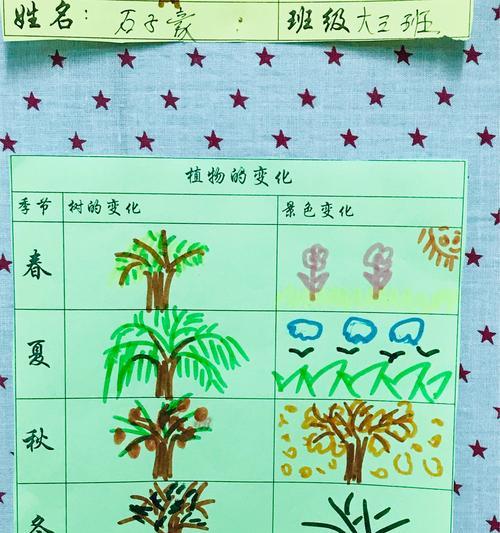 姓名：石子豪 班级 大三班
植物的变化
季节 树的变化 景色变化
春
夏
秋
冬